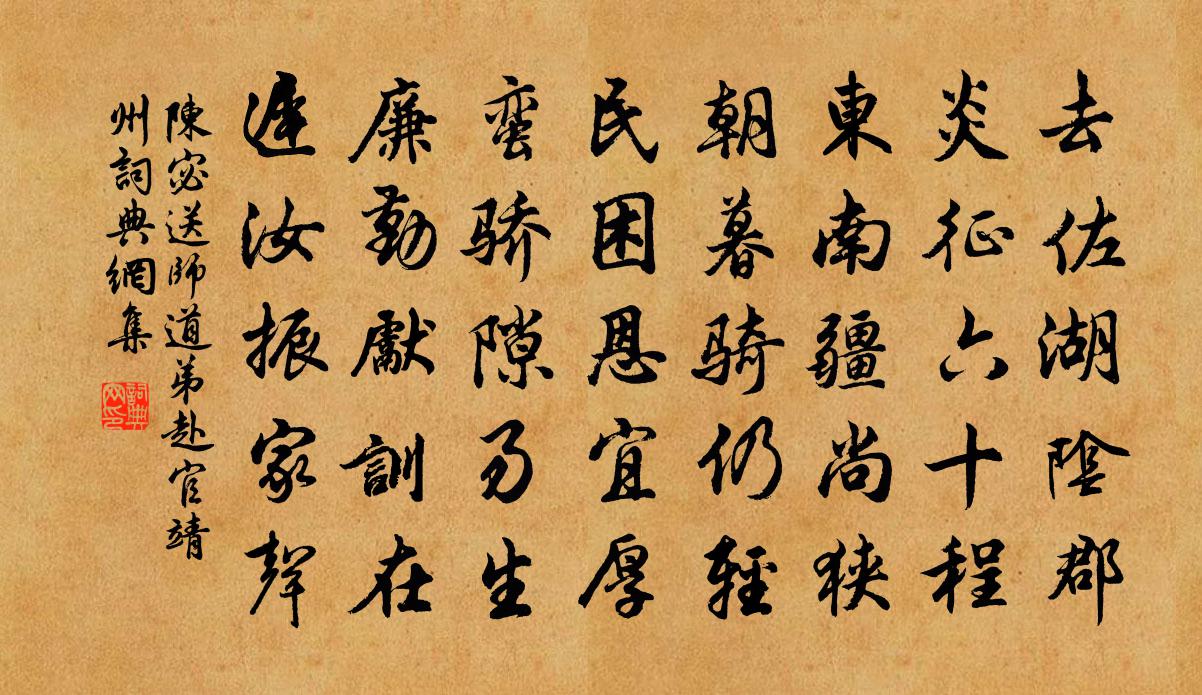 去佐湖陰郡
炎征六十程
東南疆尚狹
朝暮骑仍輕
民困恩宜厚
蛮骄隙易生
廉勤獻訓在
遲汝振家聲
陳宓送師道弟赴官靖
州詞典網集
詞典網印